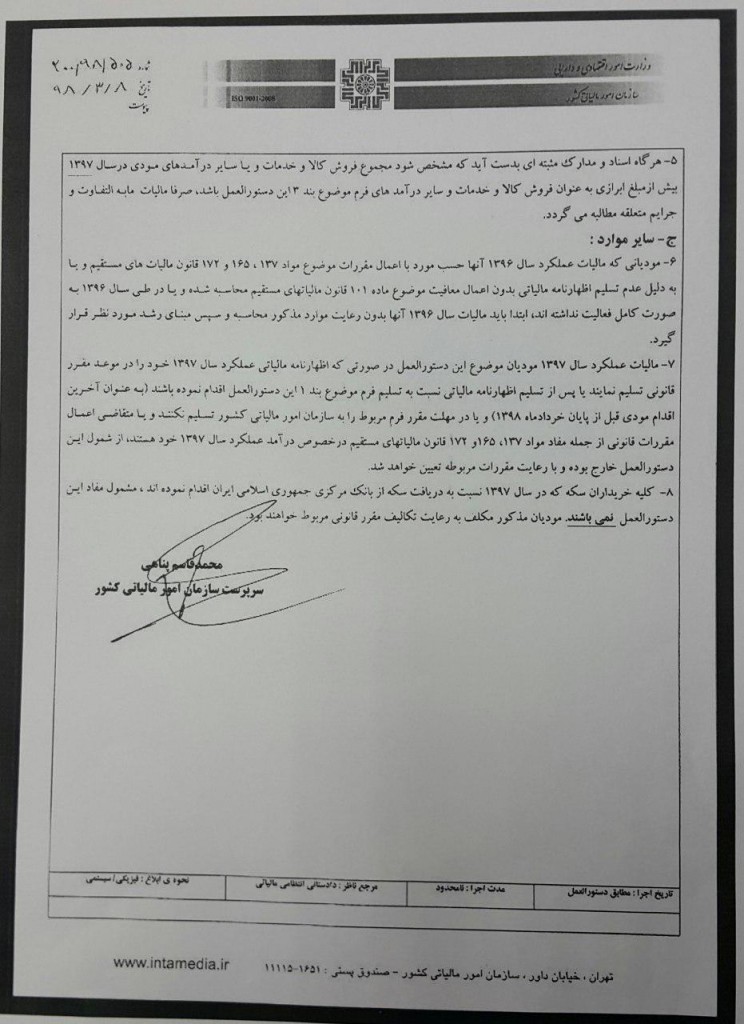 وزارت امور اقتصادی و دارایی
سازمان امور مالیاتی کشور
ISO 9001-2008
شماره ۲۰۰/۹۸/۵۰۵
تاریخ ۹۸/۳/۸
پیوست
۵- هرگاه اسناد و مدارک مثبته ای بدست آید که مشخص شود مجموع فروش کالا و خدمات و یا سایر درآمدهای مودی درسال ۱۳۹۷
بیش ازمبلغ ابرازی به عنوان فروش کالا و خدمات و سایر درآمد های فرم موضوع بند ۳ این دستورالعمل باشد، صرفا مالیات مابه التفاوت و
جرایم متعلقه مطالبه می گردد.
ج- سایر موارد :
۶- مودیانی که مالیات عملکرد سال ۱۳۹۶ آنها حسب مورد با اعمال مقررات موضوع مواد ۱۳۷ ، ۱۶۵ و ۱۷۲ قانون مالیات های مستقیم و یا
به دلیل عدم تسلیم اظهارنامه مالیاتی بدون اعمال معافیت موضوع ماده ۱۰۱ قانون مالیاتهای مستقیم محاسبه شده و یا در طی سال ۱۳۹۶ به
صورت کامل فعالیت نداشته اند، ابتدا باید مالیات سال ۱۳۹۶ آنها بدون رعایت موارد مذکور محاسبه و سپس مبنای رشد مورد نظر قرار
گیرد.
۷- مالیات عملکرد سال ۱۳۹۷ مودیان موضوع این دستورالعمل در صورتی که اظهارنامه مالیاتی عملکرد سال ۱۳۹۷ خود را در موعد مقرر
قانونی تسلیم نمایند یا پس از تسلیم اظهارنامه مالیاتی نسبت به تسلیم فرم موضوع بند ۱ این دستورالعمل اقدام نموده باشند (به عنوان آخرین
اقدام مودی قبل از پایان خردادماه ۱۳۹۸) و یا در مهلت مقرر فرم مربوط را به سازمان امور مالیاتی کشور تسلیم نکنند و یا متقاضی اعمال
مقررات قانونی از جمله مفاد مواد ۱۳۷، ۱۶۵و ۱۷۲ قانون مالیاتهای مستقیم درخصوص درآمد عملکرد سال ۱۳۹۷ خود هستند، از شمول این
دستورالعمل خارج بوده و با رعایت مقررات مربوطه تعیین خواهد شد.
۸- کلیه خریداران سکه که در سال ۱۳۹۷ نسبت به دریافت سکه از بانک مرکزی جمهوری اسلامی ایران اقدام نموده اند ، مشمول مفاد این
دستورالعمل نمی باشند. مودیان مذکور مکلف به رعایت تکالیف مقرر قانونی مربوط خواهند بود.
محمدقاسم پناهی
سرپرست سازمان امور مالیاتی کشور
تاریخ اجرا : مطابق دستورالعمل
مدت اجرا : نامحدود
مرجع ناظر : دادستانی انتظامی مالیاتی
نحوه ی ابلاغ : فیزیکی/ سیستمی
تهران ، خیابان داور ، سازمان امور مالیاتی کشور - صندوق پستی : ۱۶۵۱-۱۱۱۱۵
www.intamedia.ir